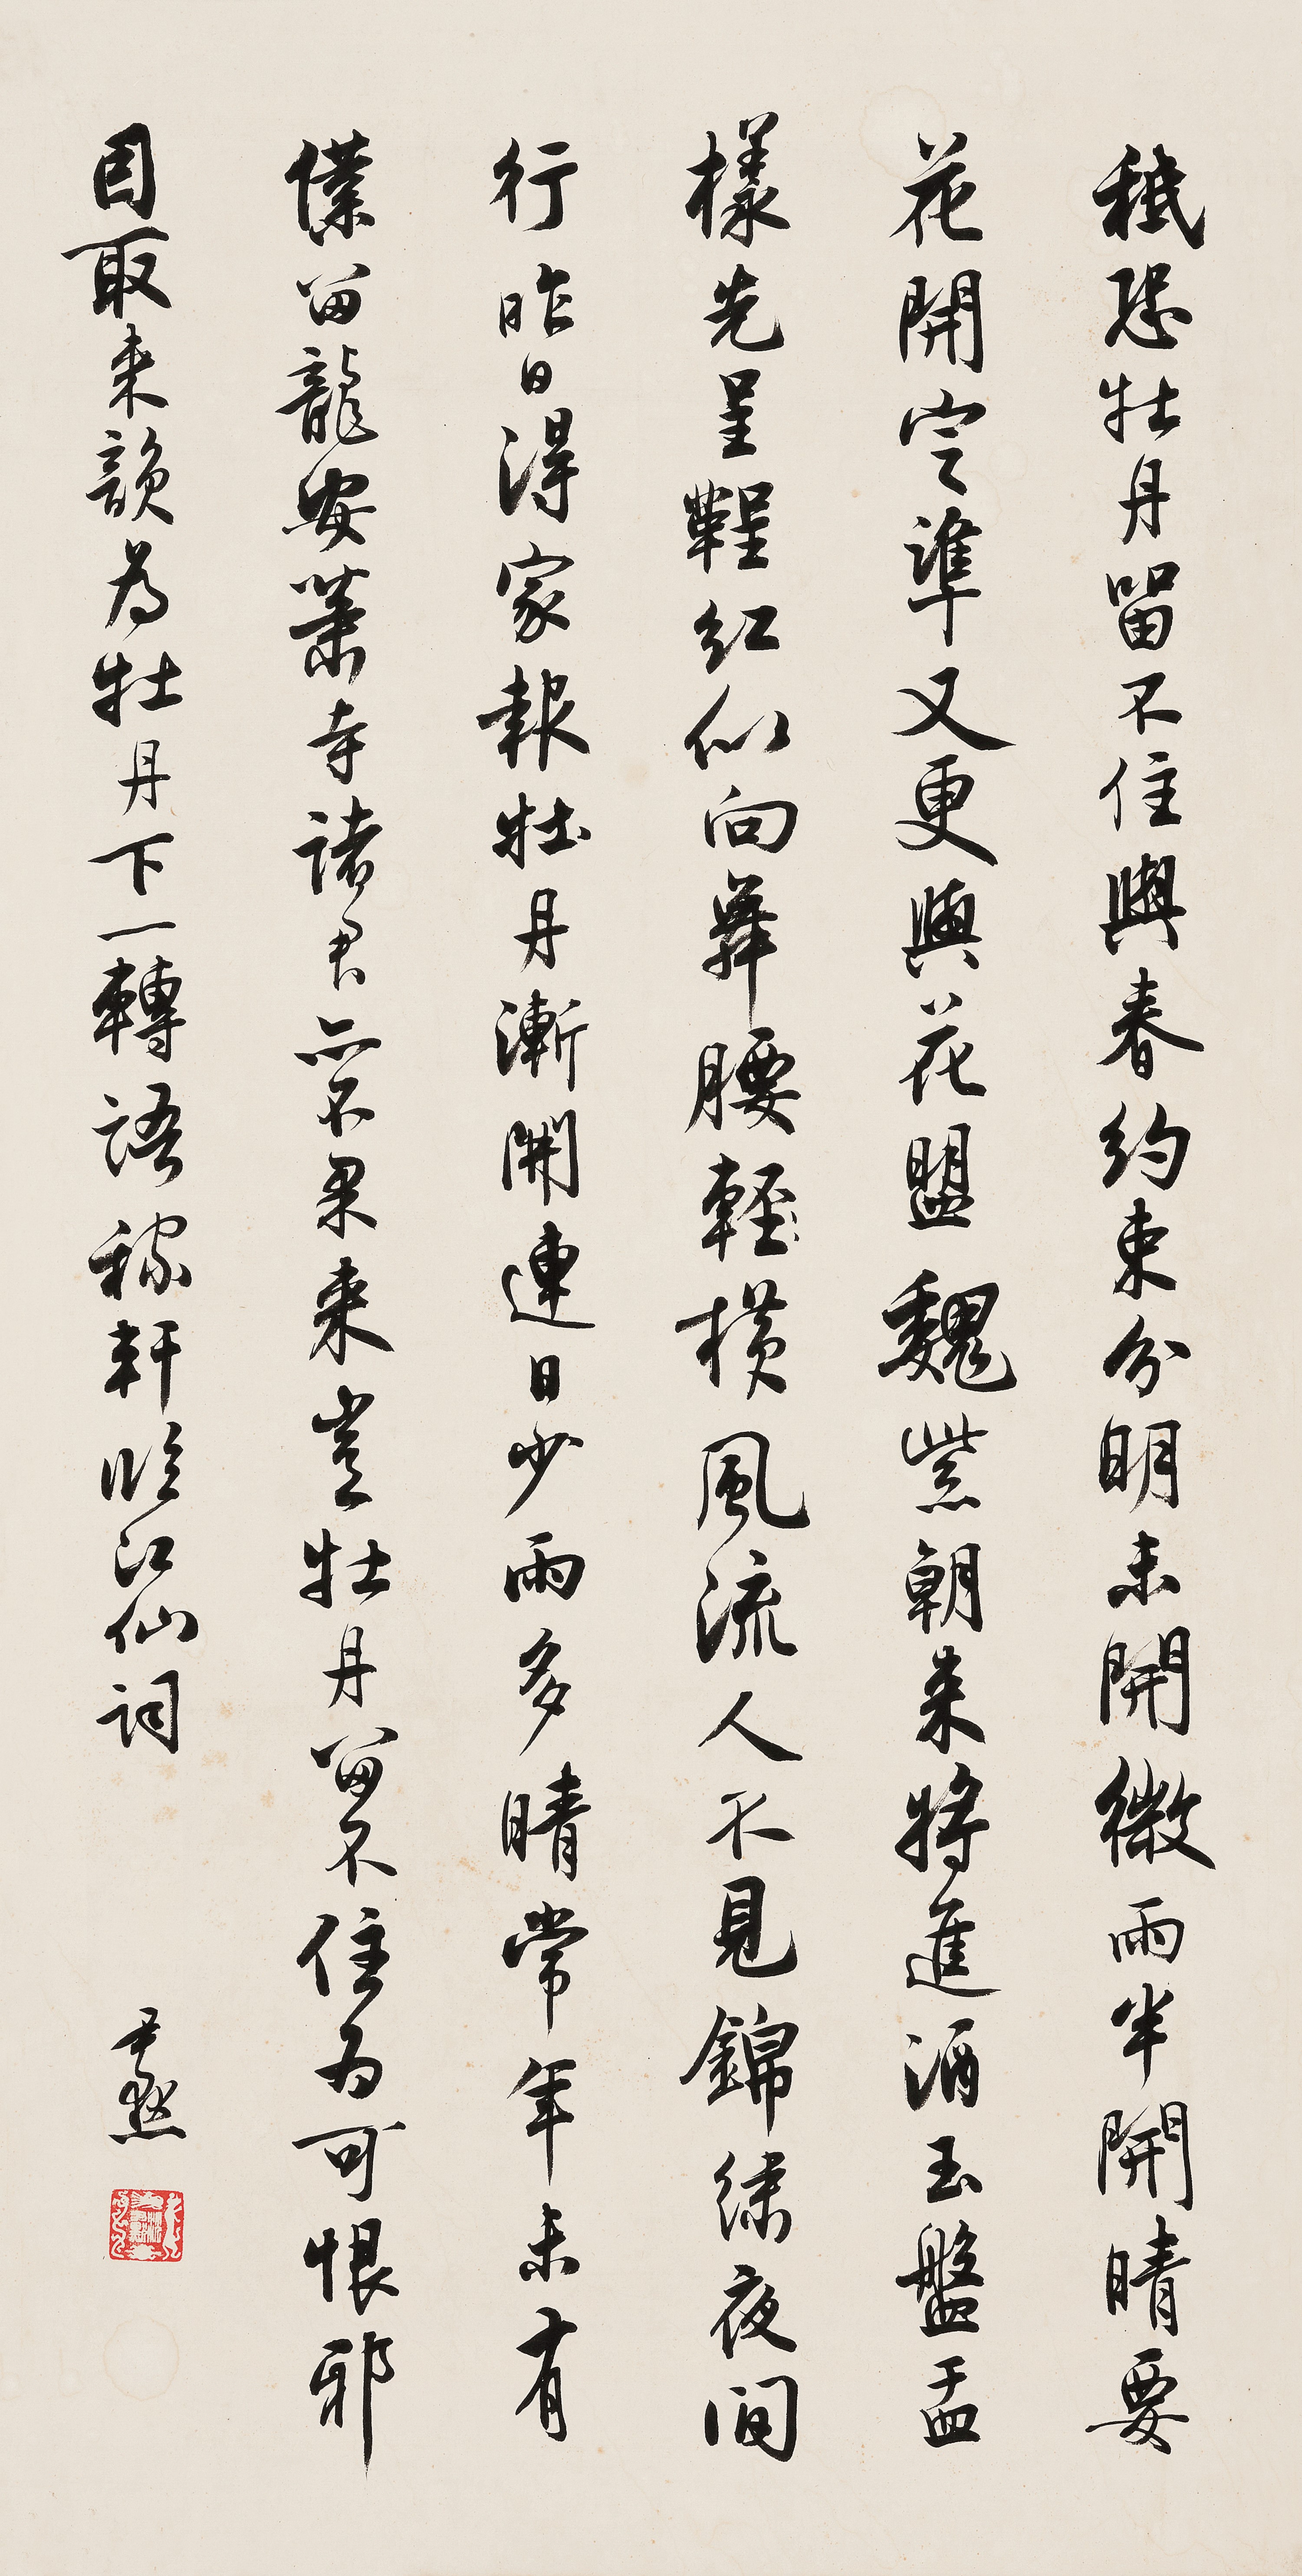 秖恐牡丹留不住與春約束分明未開微雨半開晴要
花開定準又更與花盟魏紫朝来將進酒玉盤盂
樣先呈鞓紅似向舞腰輕橫風流人不見錦繡夜間
行昨日得家報牡丹漸開連日少雨多晴常年未有
僕留龍安蕭寺諸君亦不果来豈牡丹留不住為可恨邪
因取来韻為牡丹下一轉語稼軒臨江仙詞
尹默